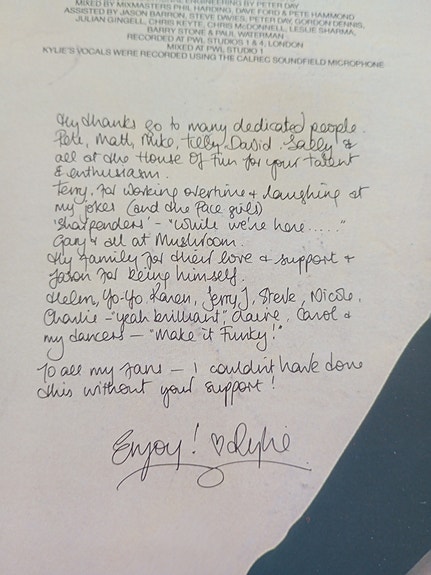 ENGINEERING BY PETER DAY
MIXED BY MIXMASTERS PHIL HARDING, DAVE FORD & PETE HAMMOND
ASSISTED BY JASON BARRON, STEVE DAVIES, PETER DAY, GORDON DENNIS,
JULIAN GINGELL, CHRIS KEYTE, CHRIS McDONNELL, LESLIE SHARMA,
BARRY STONE & PAUL WATERMAN
RECORDED AT PWL STUDIOS 1 & 4, LONDON
MIXED AT PWL STUDIO 1
KYLIE'S VOCALS WERE RECORDED USING THE CALREC SOUNDFIELD MICROPHONE
My thanks go to many dedicated people.
Pete, Matt, Mike, Tilly, David, Sally &
all at the House Of Fun for your talent
& enthusiasm.
Terry, for working overtime & laughing at
my jokes (and the Pace girls)
'Sharpenders' - "While we're here....."
Gary & all at Mushroom.
My family for their love & support &
Jason for being himself.
Helen, Yo-Yo, Karen, Jerry J, Steve, Nicole,
Charlie - "yeah brilliant", Claire, Carol &
my dancers - "Make it Funky!"
To all my fans - I couldn't have done
this without your support!
Enjoy! ♡ Kylie